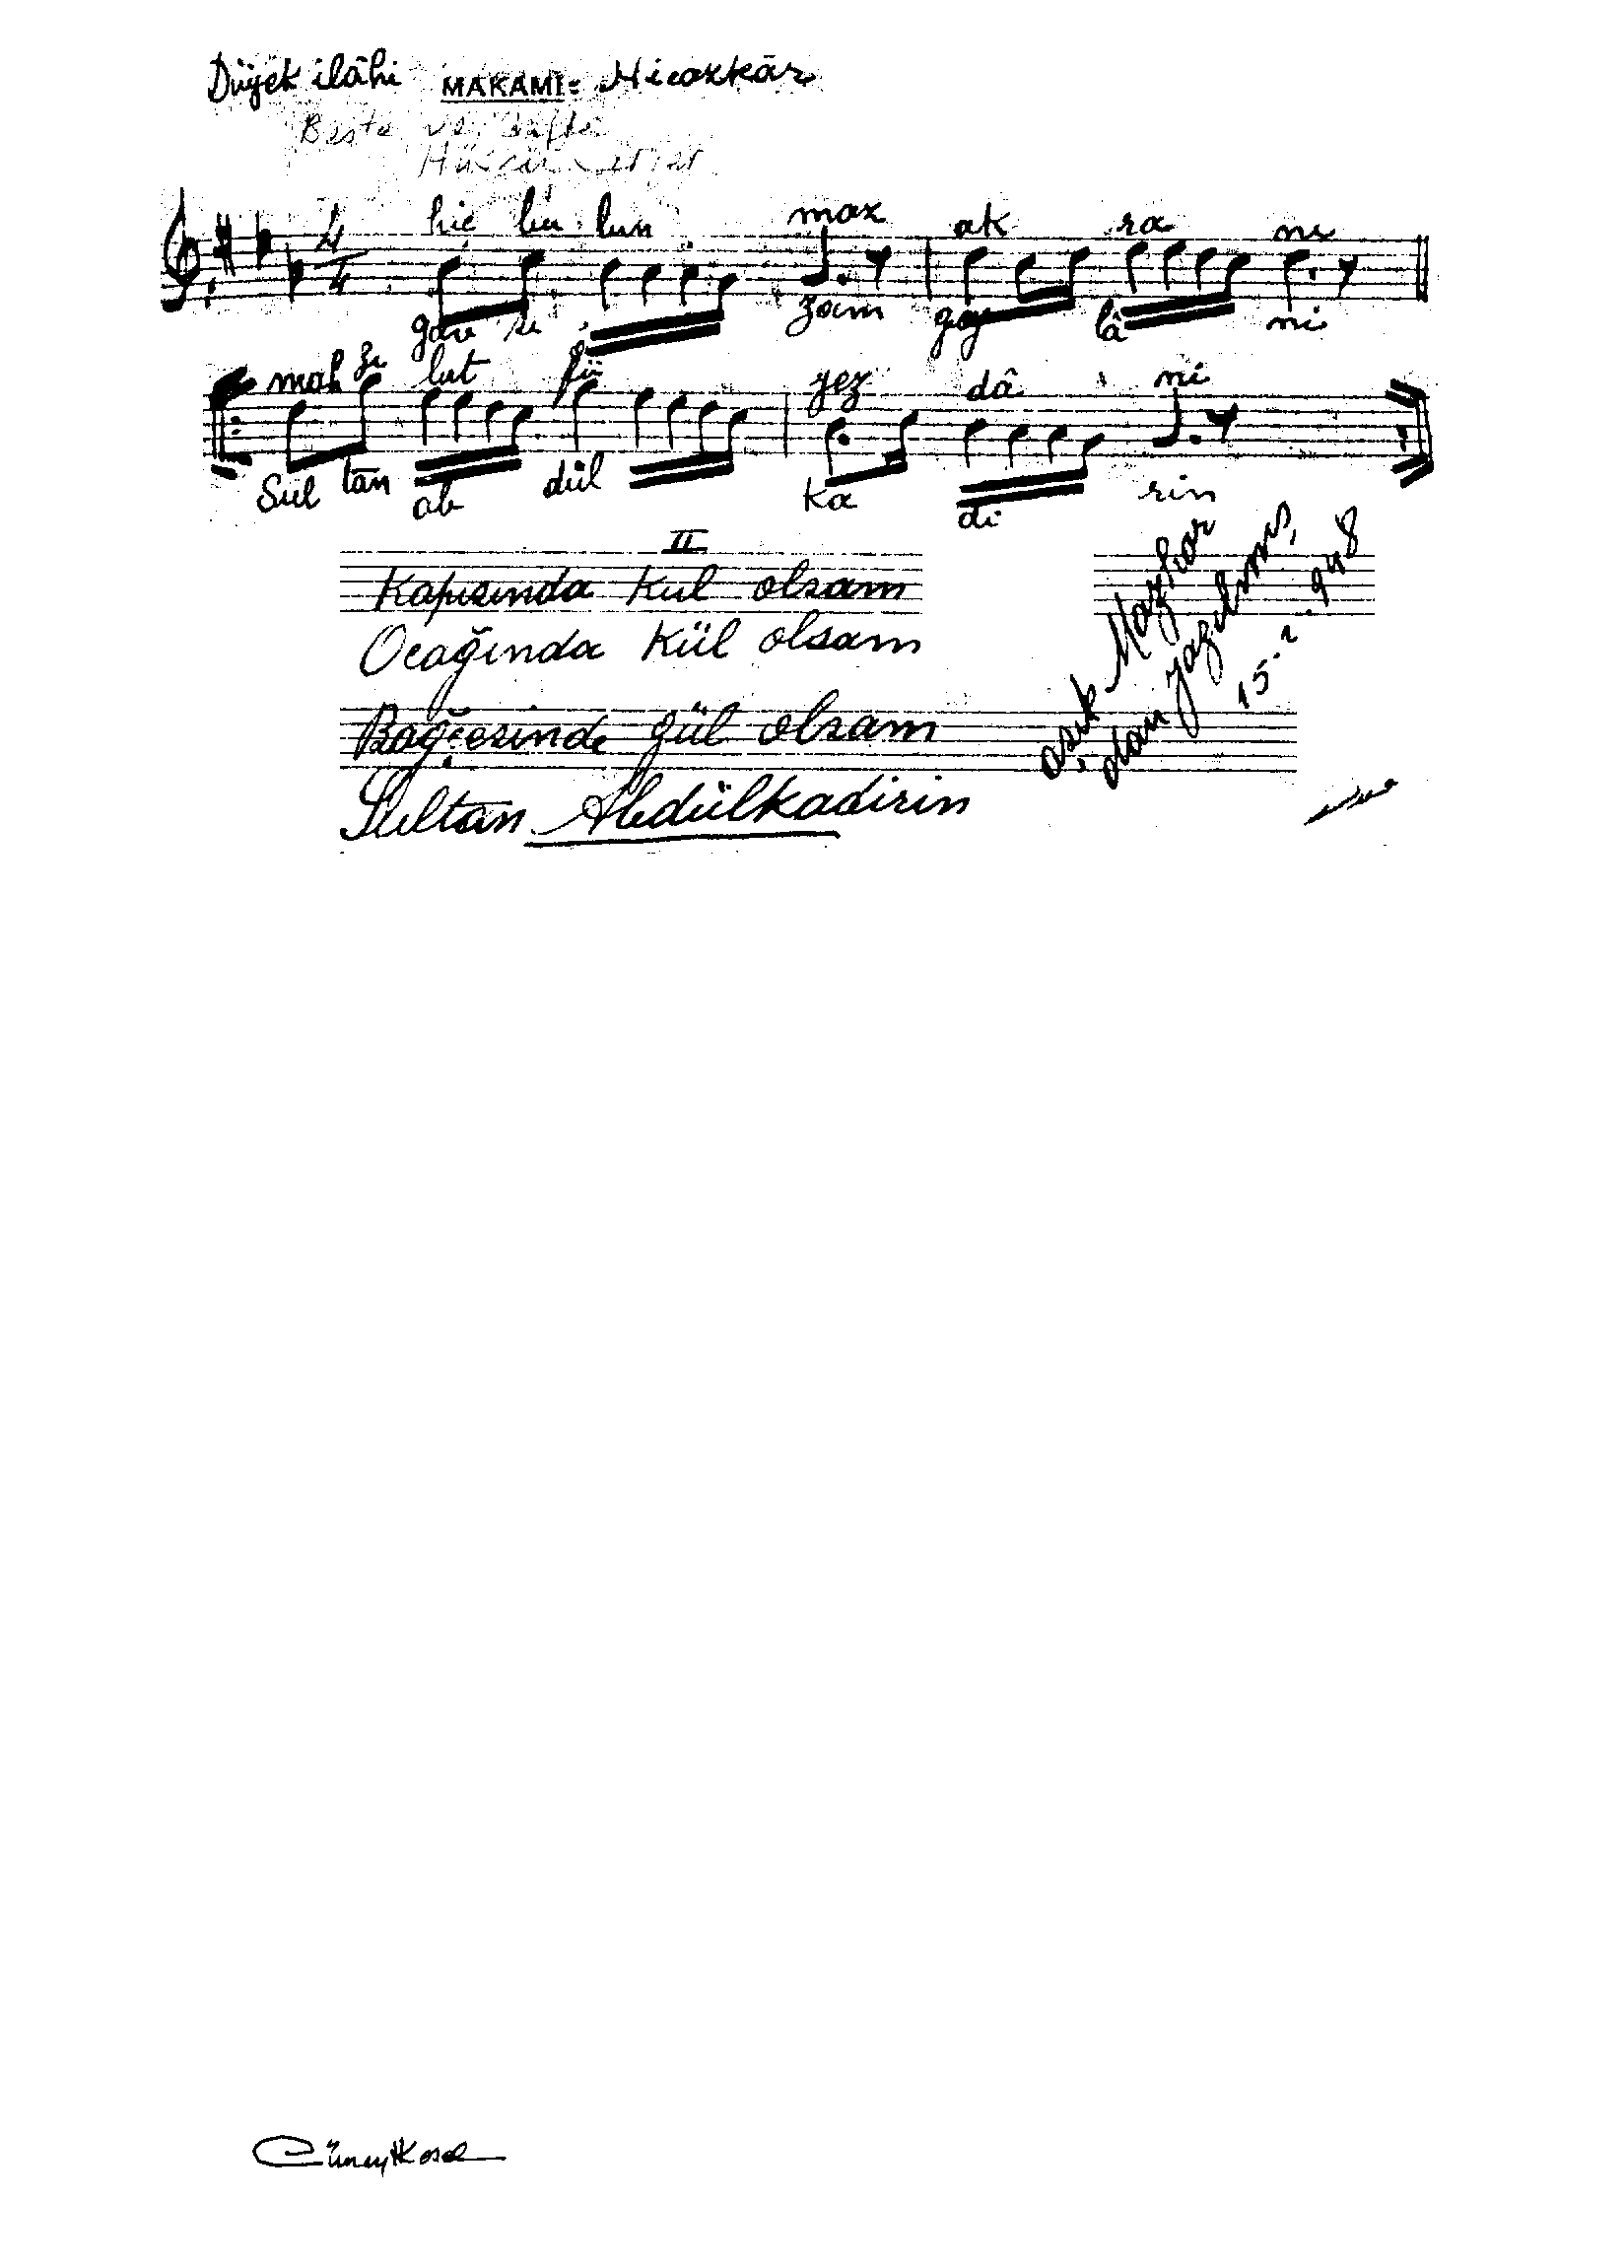 Düyek ilâhi MAKAMI= Hicazkâr
Beste ve Güfte
4/4
hiç bu lun maz ak ra nı
gav si zam gey lâ ni
mah zı lut fü yez dâ ni
Sul tan ab dül ka di rin
II
Kapısında kul olsam
Ocağında kül olsam
Bağçesinde gül olsam
Sultan Abdülkadirin
aşık Mazhar
dan yazılmış,
15-2-948
Cüneyt Kosal